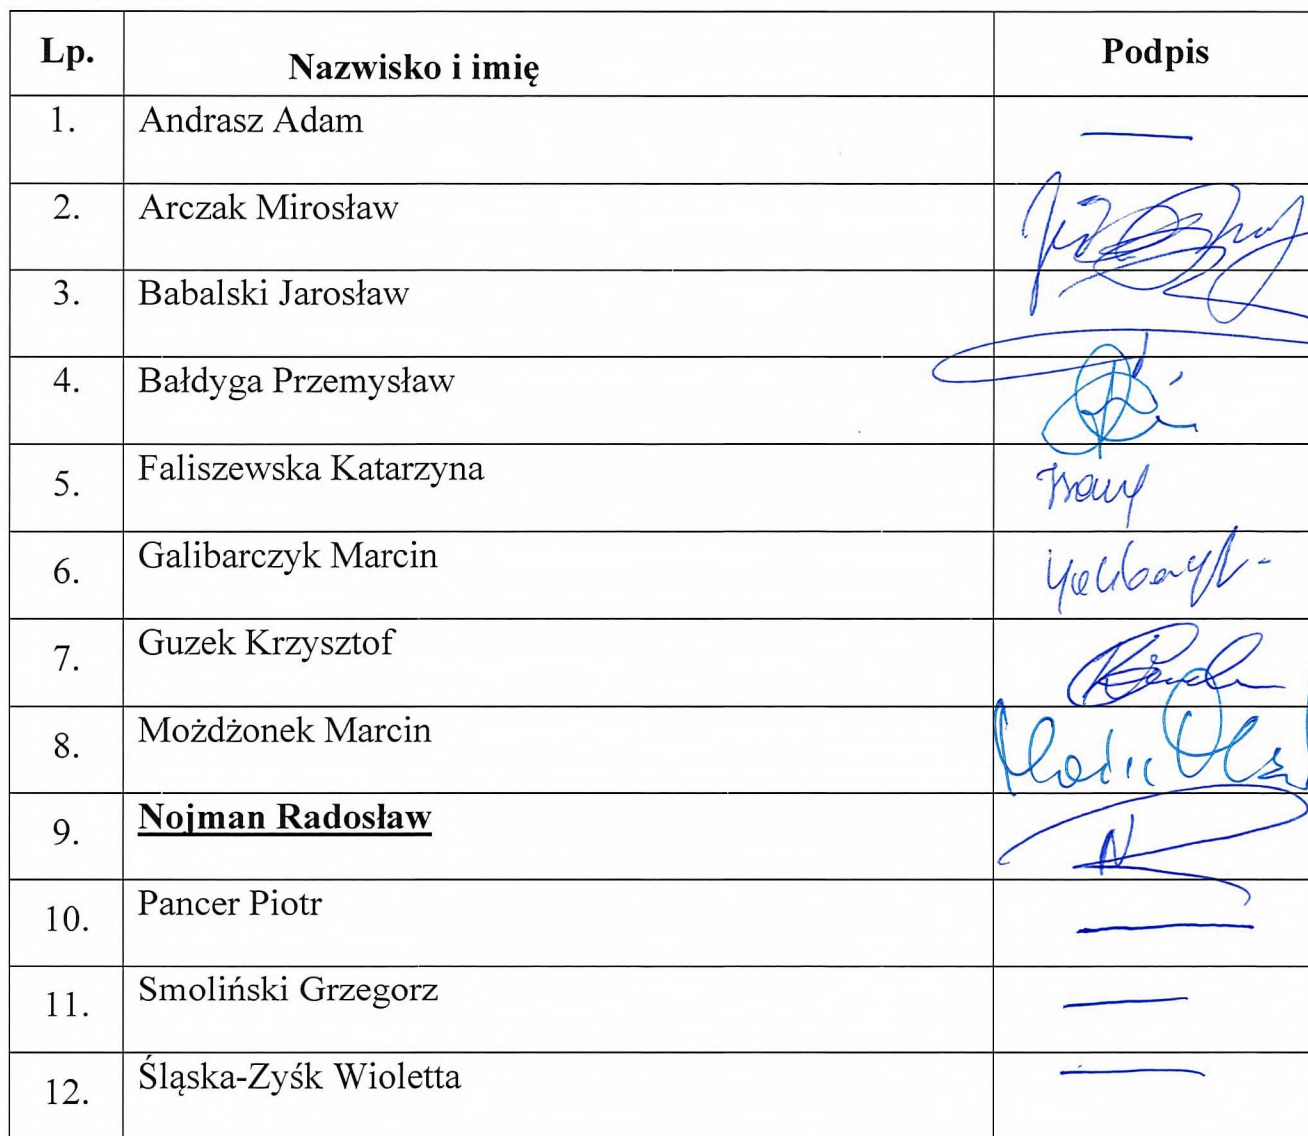 Lp. Nazwisko i imię Podpis
1. Andrasz Adam —
2. Arczak Mirosław
3. Babalski Jarosław
4. Bałdyga Przemysław
5. Faliszewska Katarzyna
6. Galibarczyk Marcin
7. Guzek Krzysztof
8. Możdżonek Marcin
9. Nojman Radosław
10. Pancer Piotr —
11. Smoliński Grzegorz —
12. Śląska-Zyśk Wioletta —